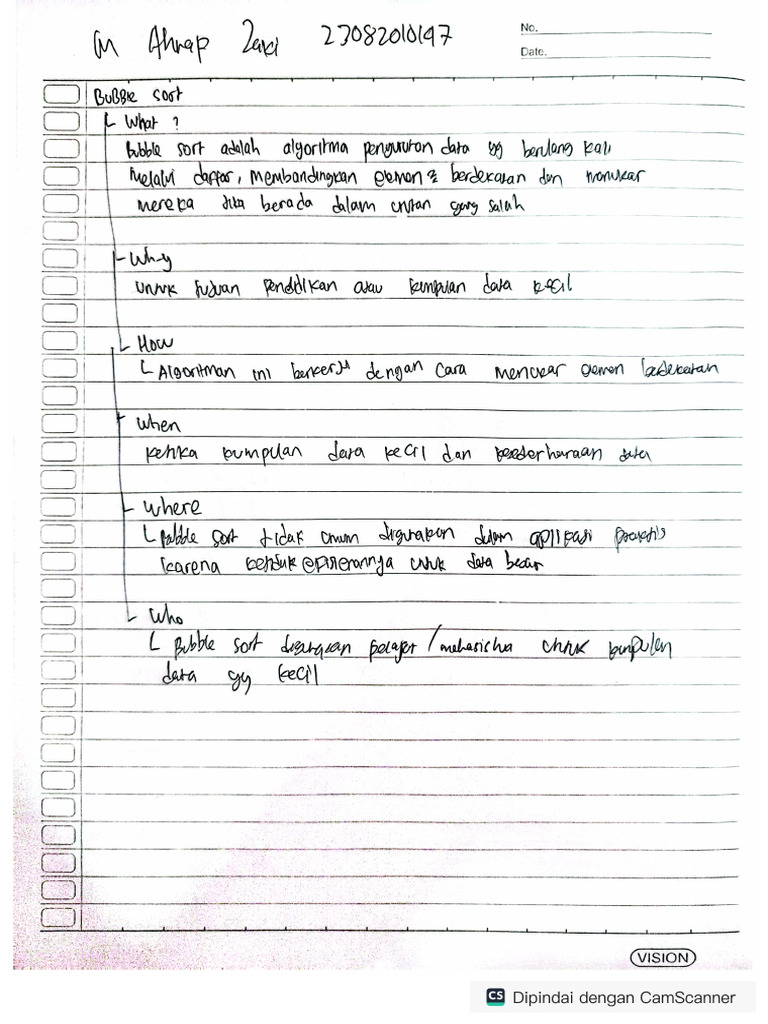 M Ahnap Zaki 23082010147
No.
Date.
Bubble sort
What ?
Bubble sort adalah algoritma pengurutan data yg berulang kali
melalui daftar, membandingkan elemen2 berdekatan dan menukar
mereka jika berada dalam urutan yang salah
Why
untuk tujuan pendidikan atau kumpulan data kecil
How
Algoritman ini berkerja dengan cara menukar elemen berdekatan
when
ketika kumpulan data kecil dan data
where
Bubble sort tidak umum digunakan dalam aplikasi praktis
karena untuk data besar
Who
Bubble sort digunakan pelajar / mahasiswa untuk kumpulan
data yg kecil
VISION
CS Dipindai dengan CamScanner